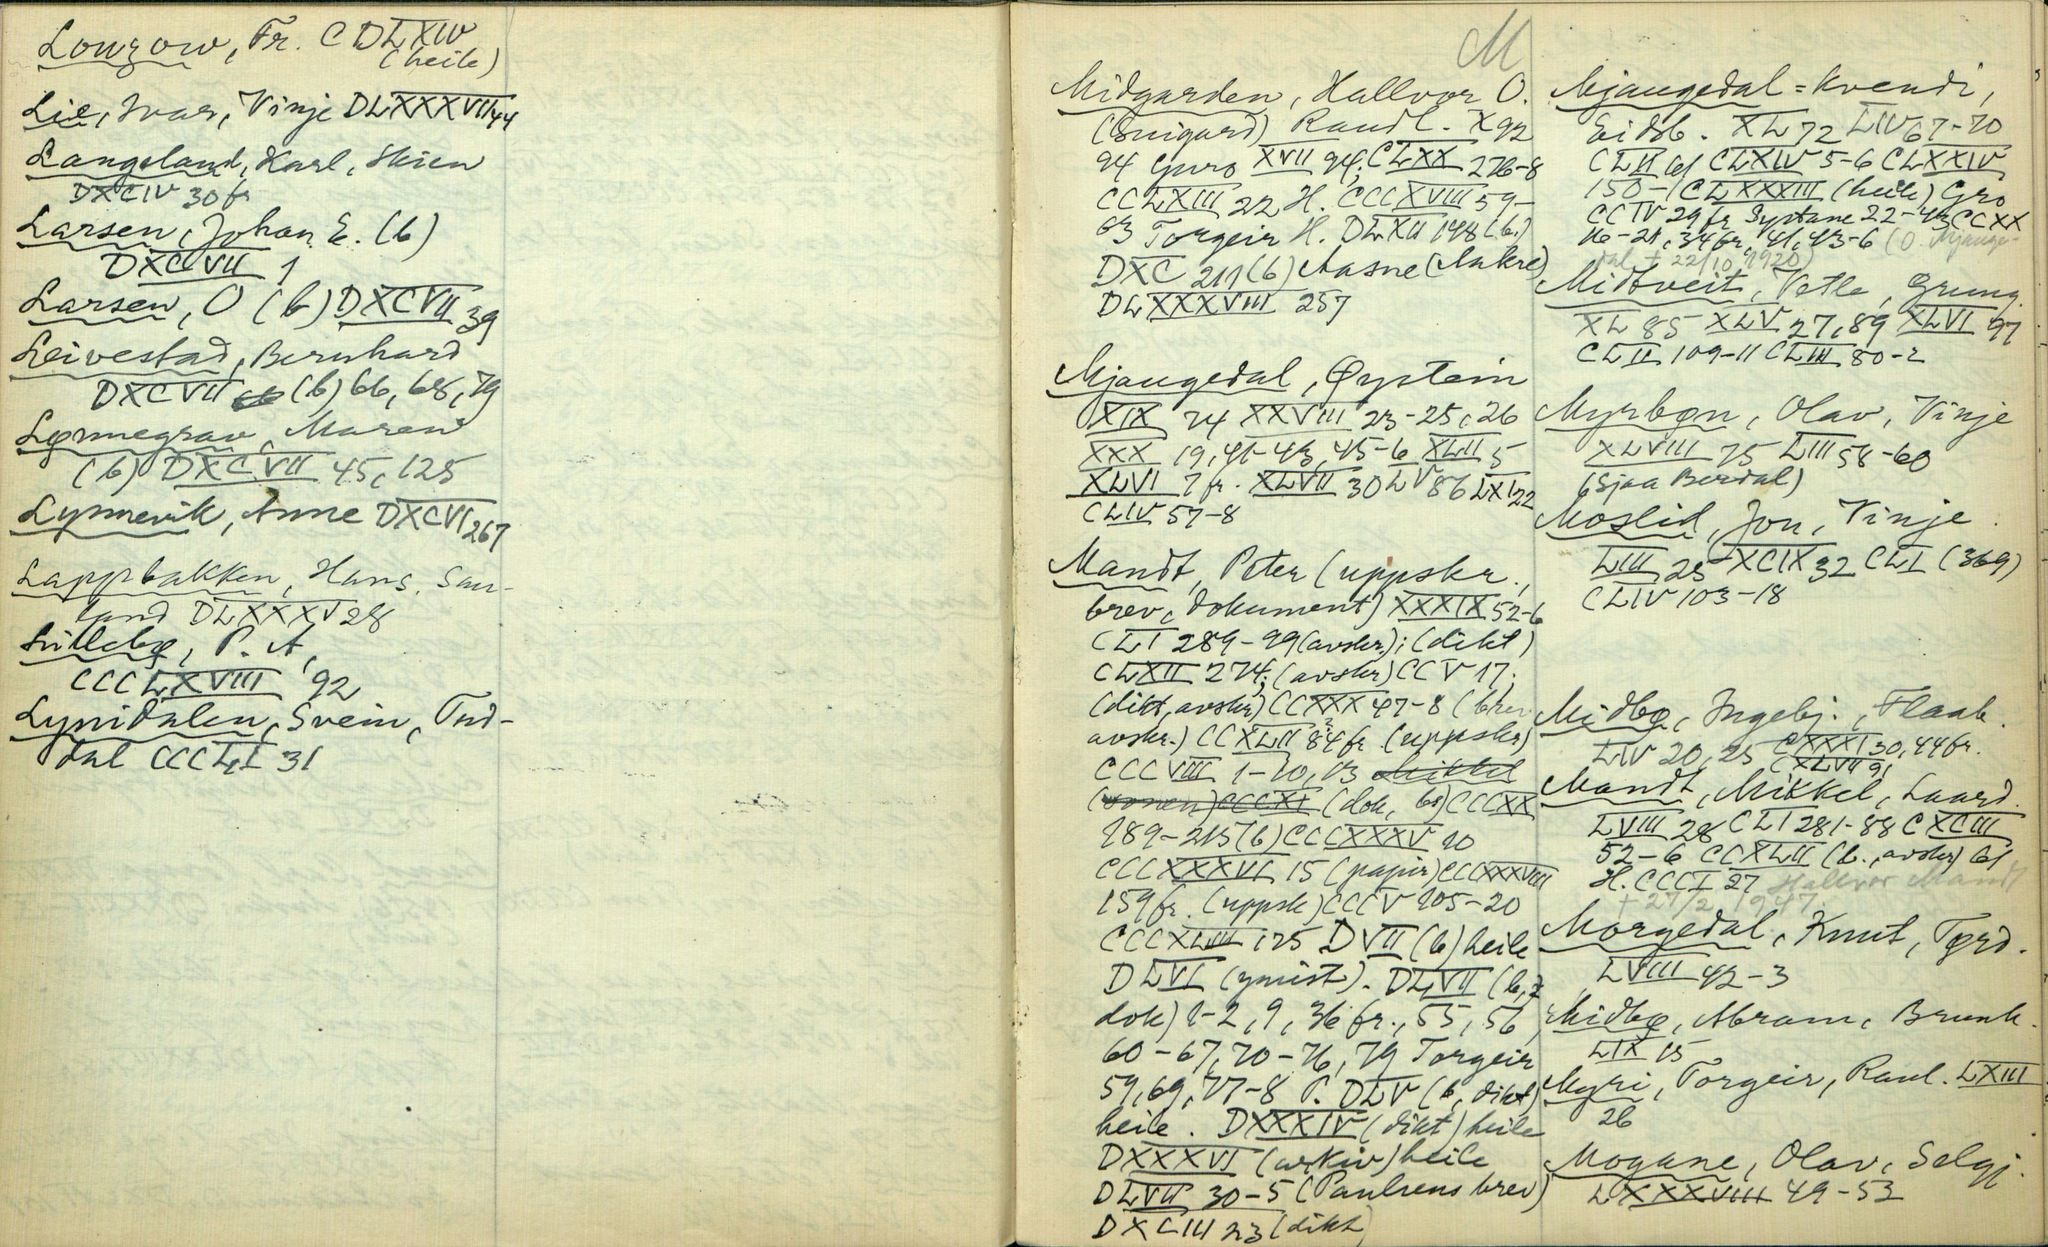 Lowzow, Fr. CDLXIV
(heile)
Lie, Ivar, Vinje DLXXXVII 44
Langeland, Karl, Skien
DXCIV 30fr
Larsen, Johan E. (b)
DXCVII 1
Larsen, O (b) DXCVII 39
Leivestad, Bernhard
DXCVII (b) 66, 68, 79
Lønnegrav, Maren
(b) DXCVII 45, 125
Lynnevik, Anne DXCVI 267
Lappbakken, Hans, Sau-
land DLXXXV 28
Lillebø, P. A,
CCCLXVIII 92
Lynidalen, Svein, Tud-
dal CCCLI 31
M
Midgarden, Hallvor O.
(Snigard) Raudl. X 92
94 Guro XVII 94; CLXX 276-8
CCLXIII 22 H. CCCXVIII 59-
63 Torgeir H. DLXII 148 (b.)
DXC 211 (b) Aasne (Aakre)
DLXXXVIII 257
Mjaugedal, Øystein
XIX 74 XXVIII 23-25, 26
XXX 19, 41-43, 45-6 XLII 5
XLVI 7 fr. XLVII 30 LV 86 LXI 22
CLIV 57-8
Mandt, Peter (uppskr.,
brev, dokument) XXXIX 52-6
CLI 289-99 (avskr.); (dikt)
CLXII 274; (avskr) CCV 17;
(dikt, avskr) CCXXX 47-8 (brev
avskr.) CCXLII 84 fr (uppskr)
CCCVIII 1-10, 13 Mikkel
CCCXI (dok, br) CCCXX
189-215 (b) CCCXXXV 10
CCCXXXVI 15 (papir) CCCXXXVIII
159 fr. (uppsk) CCCV 105-20
CCCXLIII 125 DVII (b) heile
DLVI (ymist). DLVII (b, 2
dok) 1-2, 9, 36 fr., 55, 56,
60-67, 70-76, 79 Torgeir
59, 69, 77-8 P. DLV (b, dikt)
heile. DXXXIV (dikt) heile
DXXXVI (arkiv) heile
DLVII 30-5 (Paulsens brev)
DXCIII 23 (dikt)
Mjaugedal = Kvendi,
Eidsb. XL 72 LIV 67-70
CLII 61 CLXIV 5-6 CLXXIV
150-1 CLXXXIII (heile) Gro
CCIV 29 fr Systane 22-43 CCXX
16-21, 34 fr, 41, 43-6 (O. Mjauge-
dal + 22/10 1920)
Midtveit, Vetle, Grung.
XL 85 XLV 27, 89 XLVI 97
CLII 109-11 CLIII 80-2
Myrbøn, Olav, Vinje
XLVIII 75 LIII 58-60
(Sjaa Berdal)
Moslid, Jon, Vinje.
LIII 25 XCIX 32 CLI (369)
CLIV 103-18
Midbø, Ingebj., Flaab.
LIV 20, 25 CXXXI 30, 44 fr.
CXLVII 91
Mandt, Mikkel, Laard.
LVIII 28 CLI 281-88 CXCIII
52-6 CCXLII (b., avskr) 61
H. CCCI 27 Hallvor Mandt
+ 27/2 1947.
Morgedal, Knut, Tørd.
LVIII 42-3
Midbø, Abram, Brunk.
LIX 15
Myri, Torgeir, Raul. LXIII
26
Mogane, Olav, Selgj.
LXXXVIII 49-53